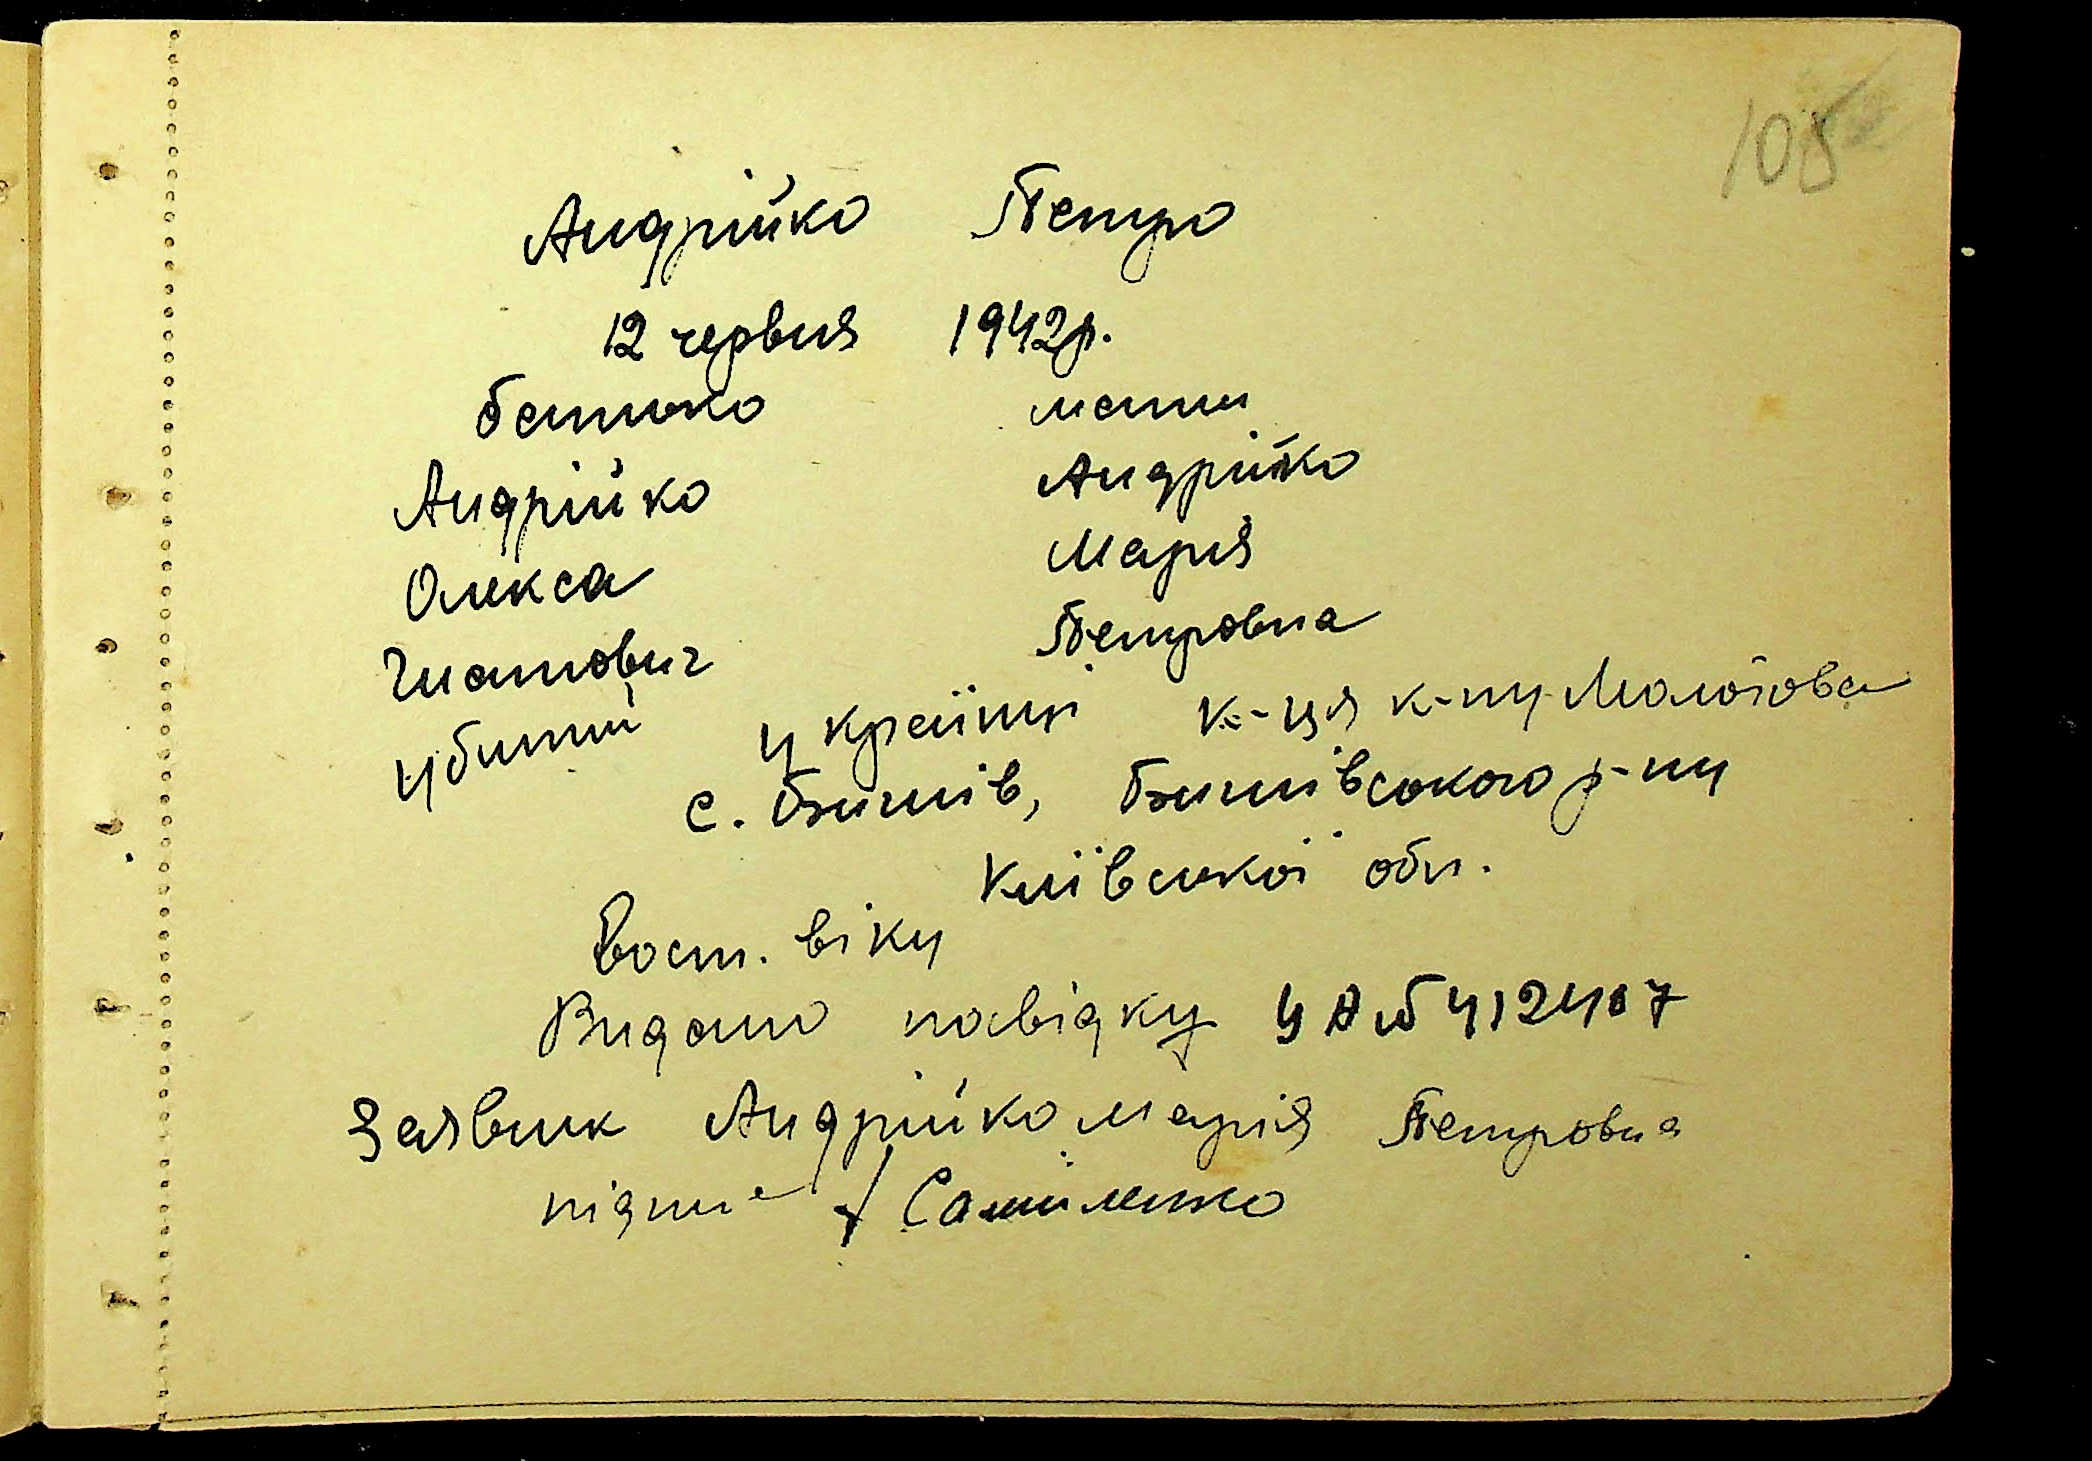 108
Андрійко Петро
12 червня 1942р.
батько мати
Андрійко Андрійко
Олекса Марія
Гнатович Петровна
убитий українці к-ця к-пу Молотова
с. Бишів, Бишівського р-ну
Київської обл.
вост. віку
Видано повідку
Заявник Андрійко Марія Петровна
підпис / Самійленко